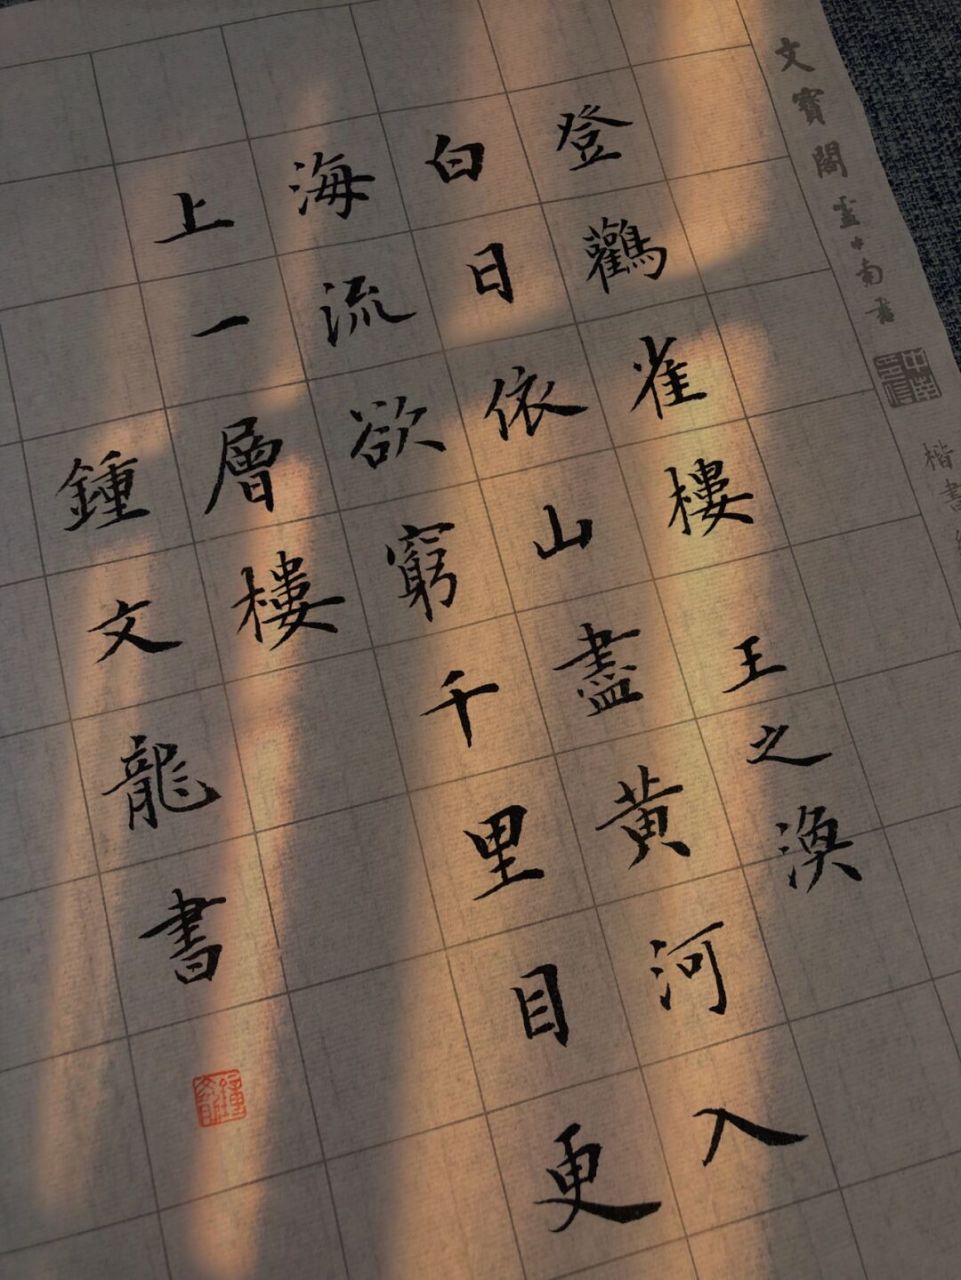 楷書
文寶閣 中南書
登鸛雀樓 王之渙
白日依山盡黃河入
海流欲窮千里目更
上一層樓
鍾文龍書